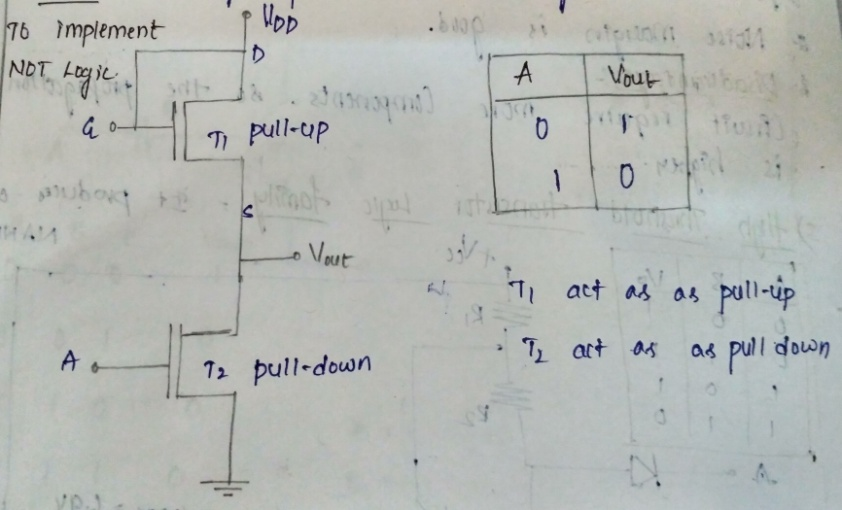 To implement
NOT Logic.
VDD
D
G
T1 pull-up
S
Vout
A
T2 pull-down
A Vout
0 1
1 0
T1 act as as pull-up
T2 act as as pull down